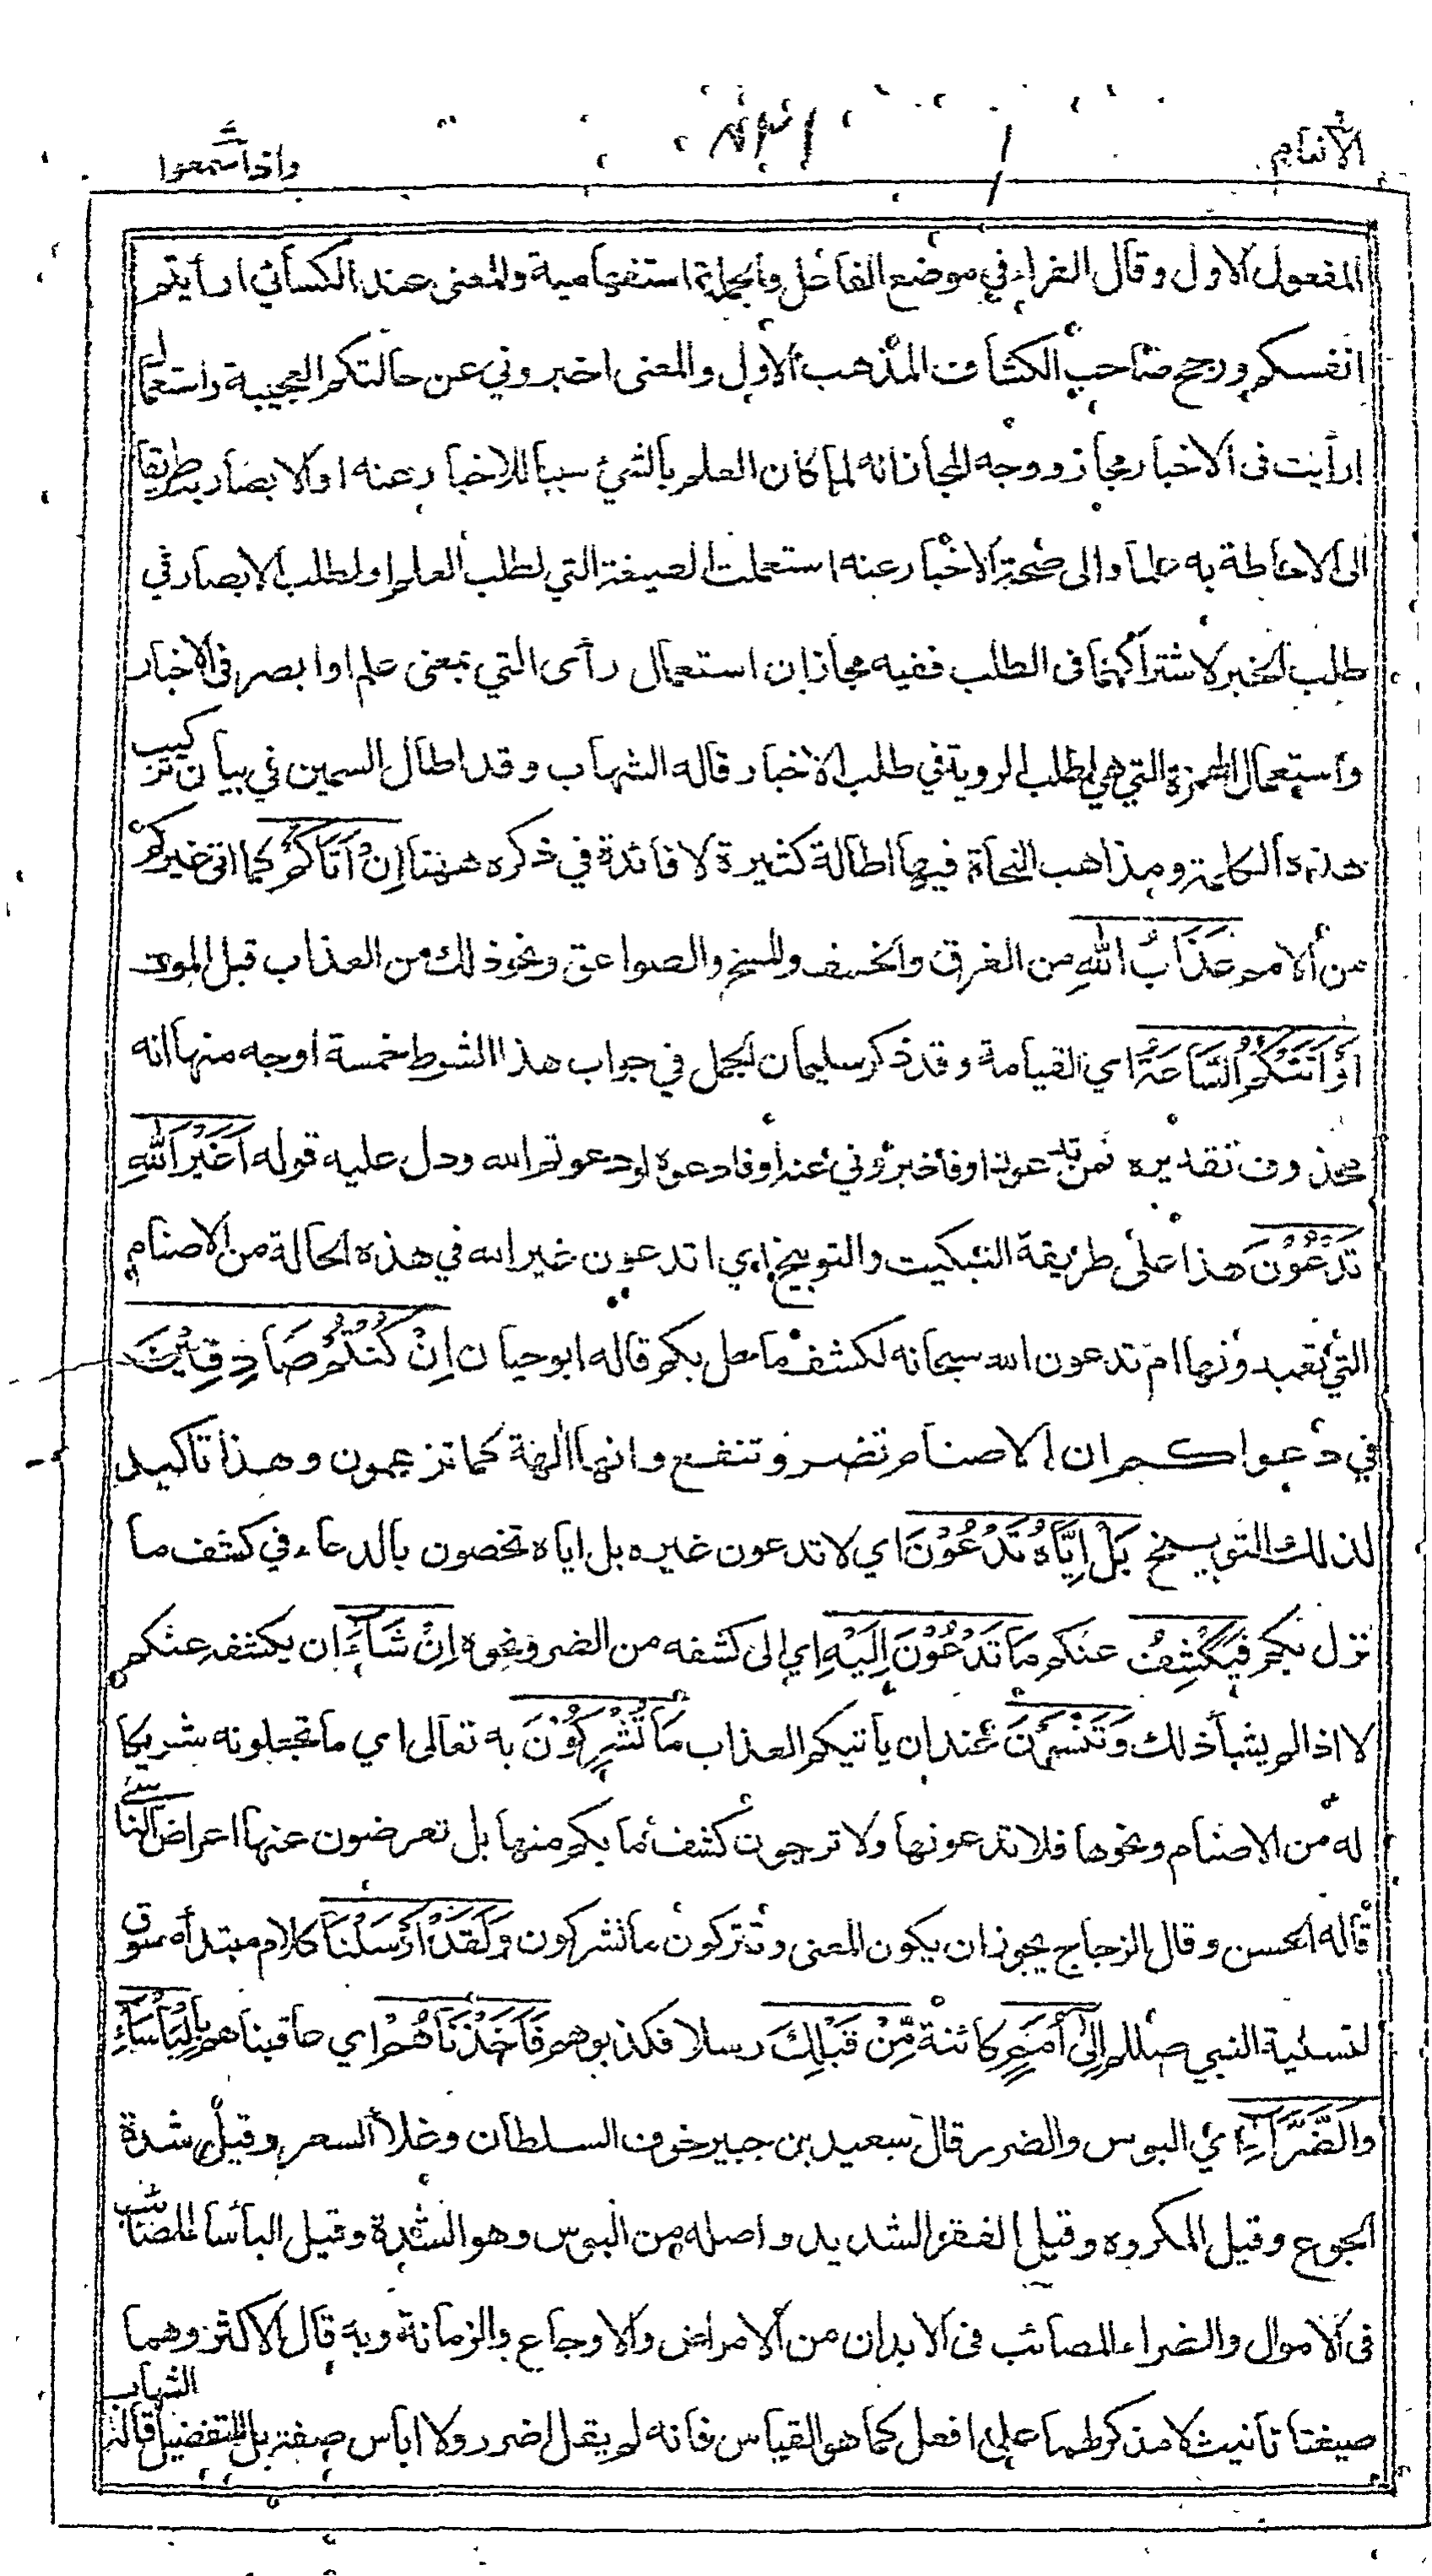 الأنعام
واذا سمعوا
المفعول الاول وقال الفراء في موضع الفاعل والجملة استفهامية والمعنى عند الكسائي ارأيتم
انفسكم ورجح صاحب الكشاف المذهب الاول والمعنى اخبروني عن حالتكم العجيبة واستعمال
ارأيت فى الاخبار مجاز ووجه المجاز انه لما كان العلم بالشئ سببا للاخبار عنه او الابصار به طريقا
الى الاحاطة به علما والى صحة الاخبار عنه استعملت الصيغة التي لطلب العلم او لطلب الابصار في
طلب الخبر لاشتراكهما فى الطلب ففيه مجازان استعمال رأى التي بمعنى علم او ابصر فى الاخبار
واستعمال الهمزة التي هي لطلب الروية في طلب الاخبار قاله الشهاب وقد اطال السمين في بيان تركيب
هذه الكلمة ومذاهب النحاة فيها اطالة كثيرة لا فائدة في ذكره ههنا اِنْ اَتَاكُمْ كما اتى غيركم
من الامم عَذَابُ اللهِ من الغرق والخسف والمسخ والصواعق ونحو ذلك من العذاب قبل الموت
اَوْ اَتَتْكُمُ السَّاعَةُ اي القيامة وقد ذكر سليمان الجمل في جواب هذا الشرط خمسة اوجه منها انه
محذوف تقديره فمن تدعون او فاخبروني عنه او فادعوه او دعوتم الله ودل عليه قوله اَغَيْرَ اللهِ
تَدْعُوْنَ هذا على طريقة التبكيت والتوبيخ اي اتدعون غير الله في هذه الحالة من الاصنام
التي تعبدونها ام تدعون الله سبحانه لكشف ما حل بكم قاله ابوحيان اِنْ كُنْتُمْ صَادِقِيْنَ
في دعواكم ان الاصنام تضر وتنفع وانها الهة كما تزعمون وهذا تاكيد
لذلك التوبيخ بَلْ اِيَّاهُ تَدْعُوْنَ اي لا تدعون غيره بل اياه تخصون بالدعاء في كشف ما
نزل بكم فَيَكْشِفُ عنكم مَا تَدْعُوْنَ اِلَيْهِ اي الى كشفه من الضر ونحوه اِنْ شَاءَ ان يكشفه عنكم
لا اذا لم يشأ ذلك وَتَنْسَوْنَ عند ان ياتيكم العذاب مَا تُشْرِكُوْنَ به تعالى اي ما تجعلونه شريكا
له من الاصنام ونحوها فلا تدعونها ولا ترجون كشف ما بكم منها بل تعرضون عنها اعراض الناسي
قاله الحسن وقال الزجاج يجوز ان يكون المعنى وتتركون ما تشركون وَلَقَدْ اَرْسَلْنَا كلام مبتدأ مسوق
لتسلية النبي صللم اِلٰى اُمَمٍ كائنة مِّنْ قَبْلِكَ رسلا فكذبوهم فَاَخَذْنَاهُمْ اي عاقبناهم بِالْبَاْسَاءِ
وَالضَّرَّاءِ اي البوس والضرر قال سعيد بن جبير خوف السلطان وغلا السعر وقيل شدة
الجوع وقيل المكروه وقيل الفقر الشديد واصله من البوس وهو الشدة وقيل البأساء المصائب
فى الاموال والضراء المصائب فى الابدان من الامراض والاوجاع والزمانة وبه قال الاكثر وهما
صيغتا تانيث لا مذكر لهما على افعل كما هو القياس فانه لم يقل اضرر ولا اباس صفة بل للتفضيل قاله الشهاب